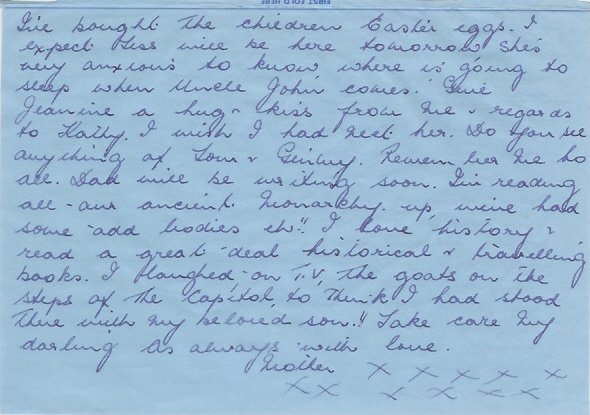 FIRST FOLD HERE
I've bought the children Easter eggs. I
expect Tess will be here tomorrow she's
very anxious to know where is going to
sleep when Uncle John comes. Give
Jeanine a hug & kiss from me & regards
to Kathy. I wish I had met her. Do you see
anything of Tom & Ginny. Remember me to
all. Dad will be writing soon. I'm reading
all our ancient Monarchy up, we've had
some odd bodies eh!! I love history &
read a great deal historical & travelling
books. I laughed on T.V. the goats on the
steps of the Capitol, to think I had stood
there with my beloved son!! Take care my
darling as always with love.
Mother x x x x x
x x x x x x